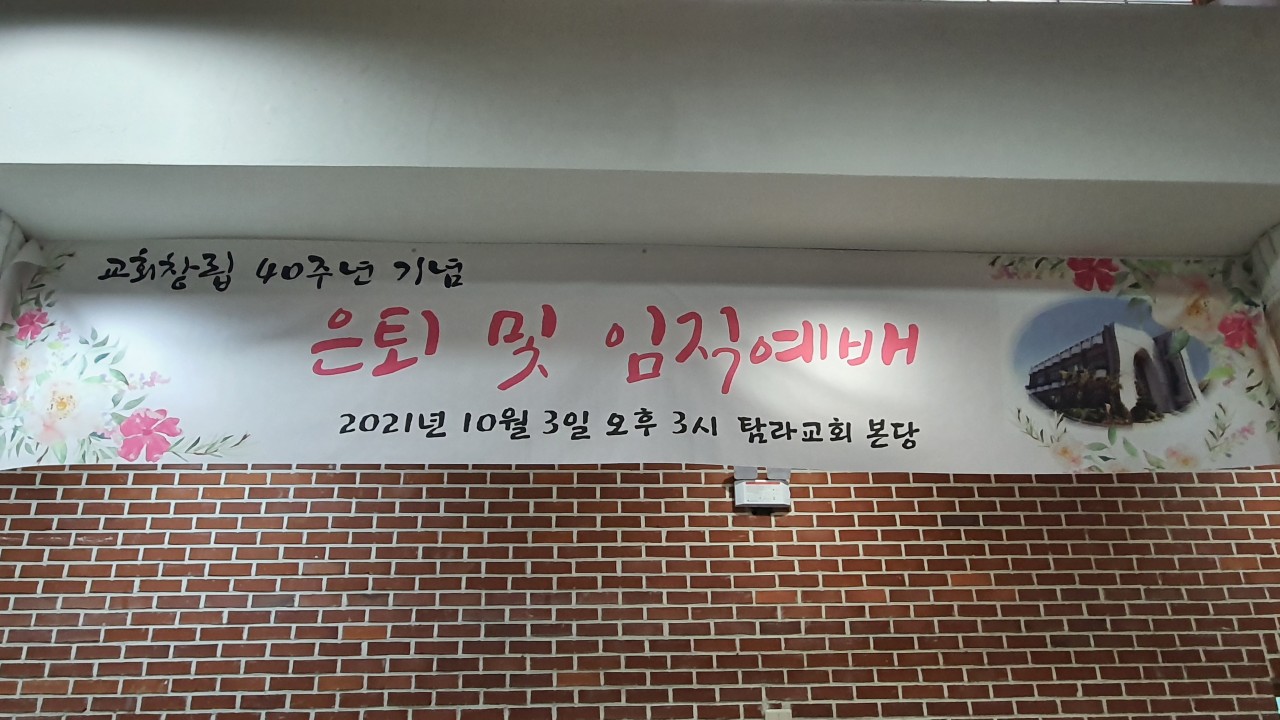 교회창립 40주년 기념
은퇴 및 임직예배
2021년 10월 3일 오후 3시 탐라교회 본당